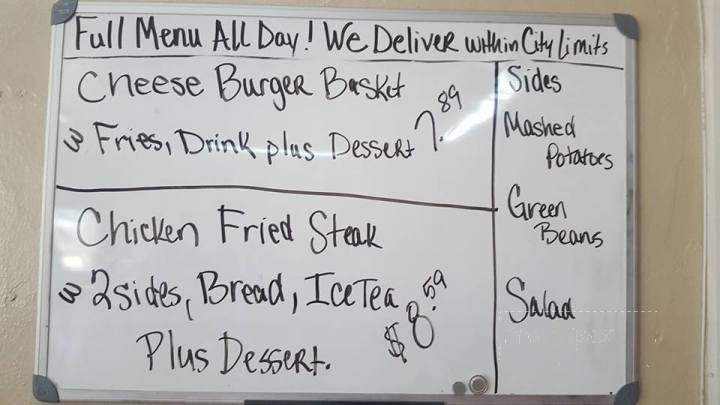 Full Menu All Day! We Deliver within City Limits
Cheese Burger Basket
w Fries, Drink plus Dessert 7.89
Chicken Fried Steak
w 2 sides, Bread, Ice Tea
Plus Dessert. $8.59
Sides
Mashed
Potatoes
Green
Beans
Salad